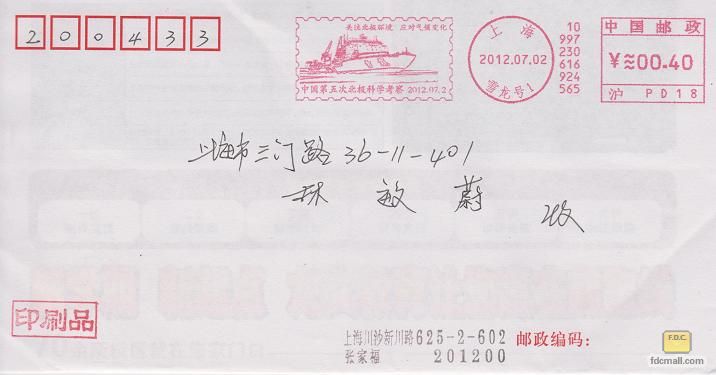 200433
关注北极环境 应对气候变化
中国第五次北极科学考察 2012.07.2
上海
2012.07.02
雪龙号1
10
997
230
616
924
565
中国邮政
¥≈00.40
沪 PD18
上海市三门路 36-11-401
林敏蔚 收
印刷品
上海川沙新川路625-2-602
张家福 201200
邮政编码:
F.D.C.
fdcmall.com